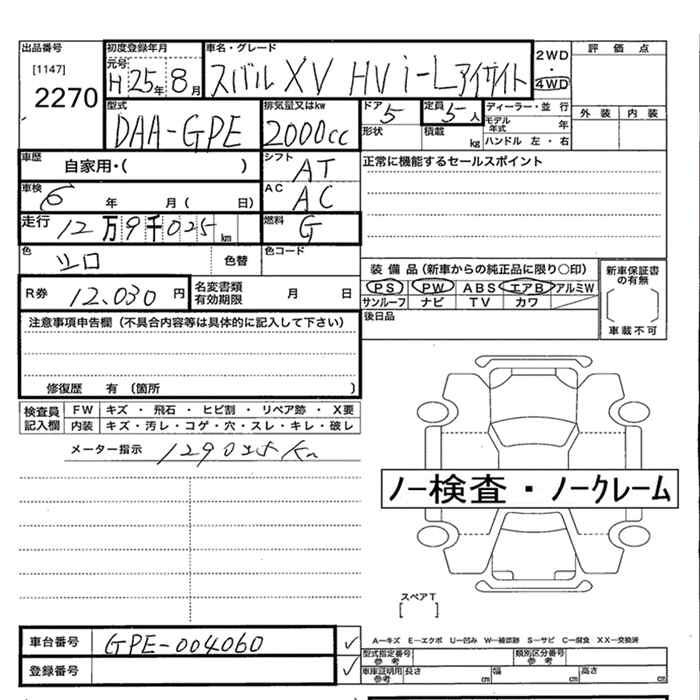 出品番号
[1147]
2270
初度登録年月
元号
H 25年 8月
車名・グレード
スバル XV HV i-L アイサイト
2WD
・
4WD
評価点
外装 内装
型式
DAA-GPE
排気量又はkw
2000cc
ドア
5
形状
定員
5人
積載
kg
ディーラー・並行
モデル年式 年
ハンドル 左・右
車歴
自家用・( )
シフト
AT
正常に機能するセールスポイント
車検
6 年 月( 日)
AC
AC
走行
12万9千025km
燃料
G
色
シロ
色替
色コード
R券 12,030円
名変書類有効期限 月 日
装備品(新車からの純正品に限り○印)
PS PW ABS エアB アルミW
サンルーフ ナビ TV カワ
新車保証書の有無
車載不可
後日品
注意事項申告欄(不具合内容等は具体的に記入して下さい)
修復歴 有 (箇所 )
検査員記入欄
FW キズ・飛石・ヒビ割・リペア跡・X要
内装 キズ・汚レ・コゲ・穴・スレ・キレ・破レ
メーター指示 129025Km
ノー検査・ノークレーム
スペアT
[ ]
A―キズ E―エクボ U―凹み W―補修跡 S―サビ C―腐食 XX―交換済
車台番号 GPE-004060 ✓
登録番号 ✓
型式指定番号 参考
類別区分番号 参考
車庫証明用 参考 長さ cm 幅 cm 高さ cm